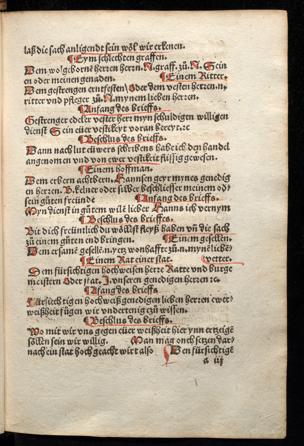 laß die sach anligendt sein wöl wir erkenen.
¶Eym schlechten graffen.
Dem wolgeborne herren herrn. N. graff. zů. N. Sein
en oder meinen genaden. ¶Einem Ritter.
Dem gestrengen ernstfesten/ oder dem vesten herren. n.
ritter vnd pfleger zů. N. mynem lieben herren.
¶Anfang des brieffs.
Gestrenger edeler vester herr myn schuldigen willigen
dienst Sein euer vestikeyt voran bereyt. rc
¶Beschlus des brieffs.
Dann nach lut euwers schribens hab ich den handel
angenomen vnd von ewer vestikeit flüssig gewesen.
¶Einem hoffman.
Dem erbern achtbern. Hannsen geyr mynes genedig
en herren. B. kelner oder silber beschliesser meinem od
sein gůten freünde ¶Anfang des brieffs.
Myn dienst in gůtem wile lieber Hanns ich vernym
¶Beschlus des brieffes.
Bit dich freüntlich du wöllst fleyß haben vn die sach
zu einem guten end bringen. ¶Einem gesellen.
Dem ersame gesele. n. yetz wonhafft zů. n. myne liebe
¶Einem Rat einer stat. vetter.
Dem fürsichtigen hochweisen herre Ratte vnd burge
meistern Oder stat. J. vnseren genedigen herren rc.
¶Afang des brieffs
Fürsichtigen hochweiß genedigen lieben herren ewer
weißheit fügen wir vndertenig zů wissen.
¶Beschlus des brieffs.
Wo mit wir vns gegen eüer weißheit hier ynn ertzeige
söllen sein wir willig. Man mag onch setzen dar
nach ein stat hoch geacht wirt also Den fürsichtige
a iij